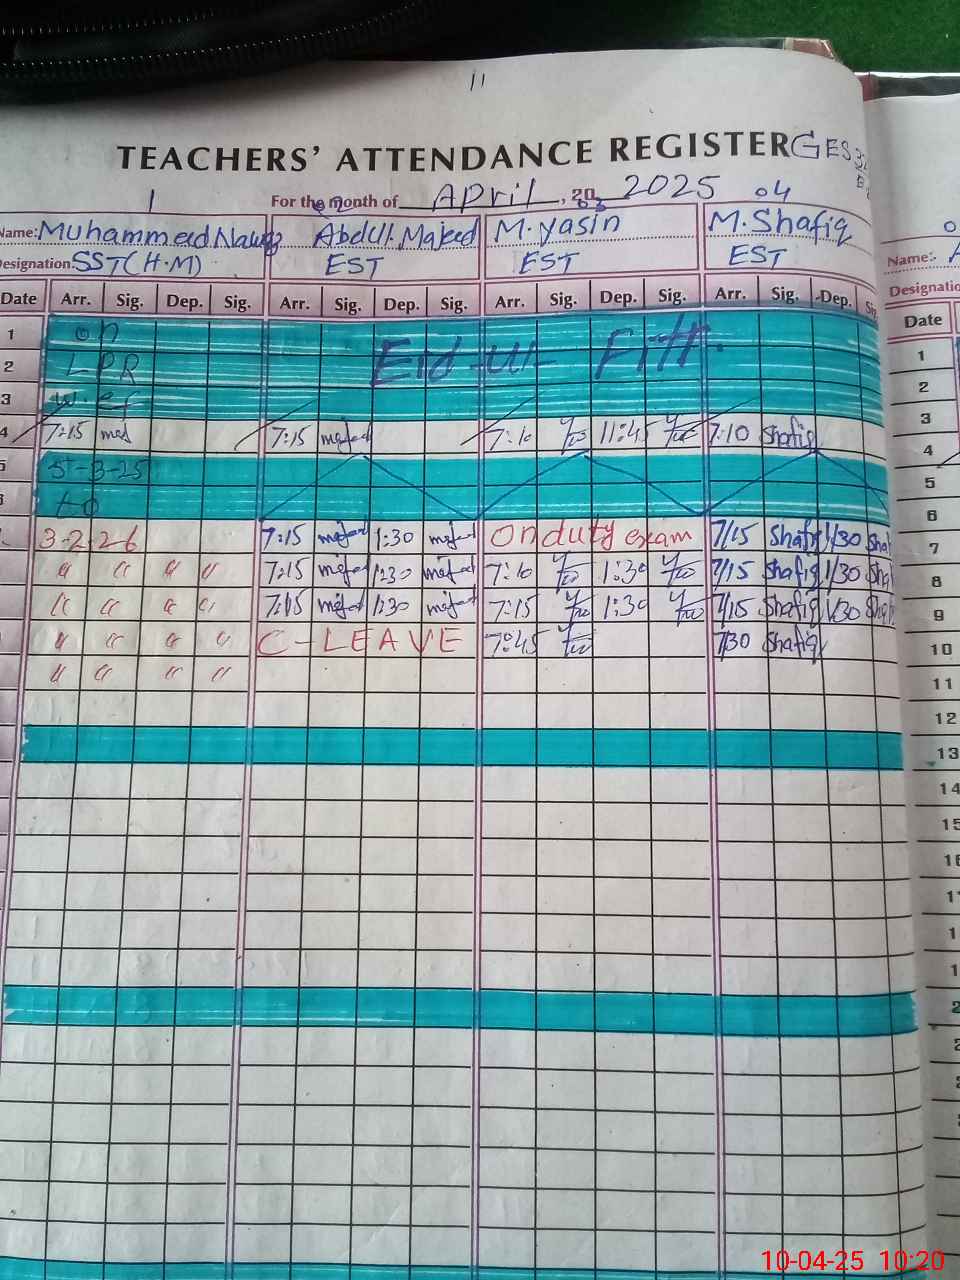 11
TEACHERS' ATTENDANCE REGISTER GES
For the month of April, 20 2025
1
02
03
04
Name: Muhammed Nawaz Abdul. Majeed M. yasin M. Shafiq
Designation: SST (H.M) EST EST EST
Name:-
Designatio
Date Arr. Sig. Dep. Sig. Arr. Sig. Dep. Sig. Arr. Sig. Dep. Sig. Arr. Sig. Dep. Sig. Date
1 on Eid-ul- Fitr. 1
2 LPR 2
3 w.ef 3
4 7:15 7:15 majeed 7:10 11:45 7:10 Shafiq 4
5 5-3-25 5
6 to 6
3-2-26 7:15 majeed 1:30 majeed On duty exam 7/15 Shafiq 1/30 Sha 7
" " " " 7:15 majeed 1:30 majeed 7:10 1:30 7/15 Shafiq 1/30 Sha 8
" " " " 7:15 majeed 1:30 majeed 7:15 1:30 7/15 Shafiq 1/30 Shafi 9
" " " " C-LEAVE 7:45 7/30 Shafiq 10
" " " " 11
12
13
14
15
10-04-25 10:20